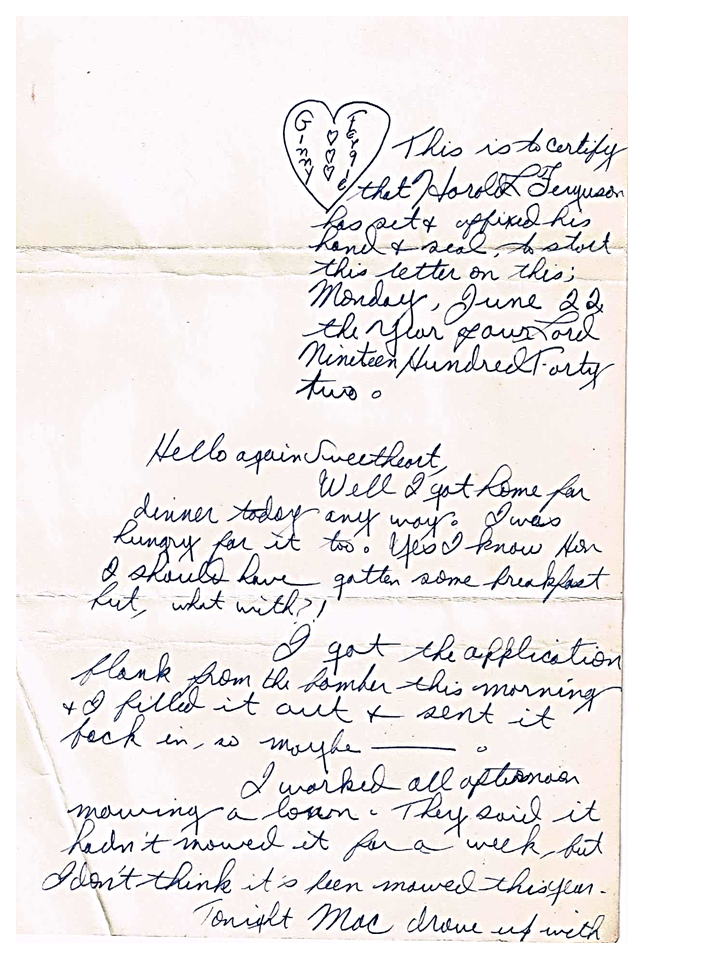 Ginny
Fergie
This is to certify
that Harold L Ferguson
has set & affixed his
hand & seal, to start
this letter on this;
Monday, June 22
the Year of our Lord
Nineteen Hundred Forty
two.
Hello again Sweetheart,
Well I got home for
dinner today any way. I was
hungry for it too. Yes I know Hon
I should have gotten some breakfast
but, what with?!
I got the application
blank from the bomber this morning
& I filled it out & sent it
back in, so maybe ——— .
I worked all afternoon
mowing a lawn. They said it
hadn't mowed it for a week, but
I don't think it's been mowed this year.
Tonight Mac drove up with